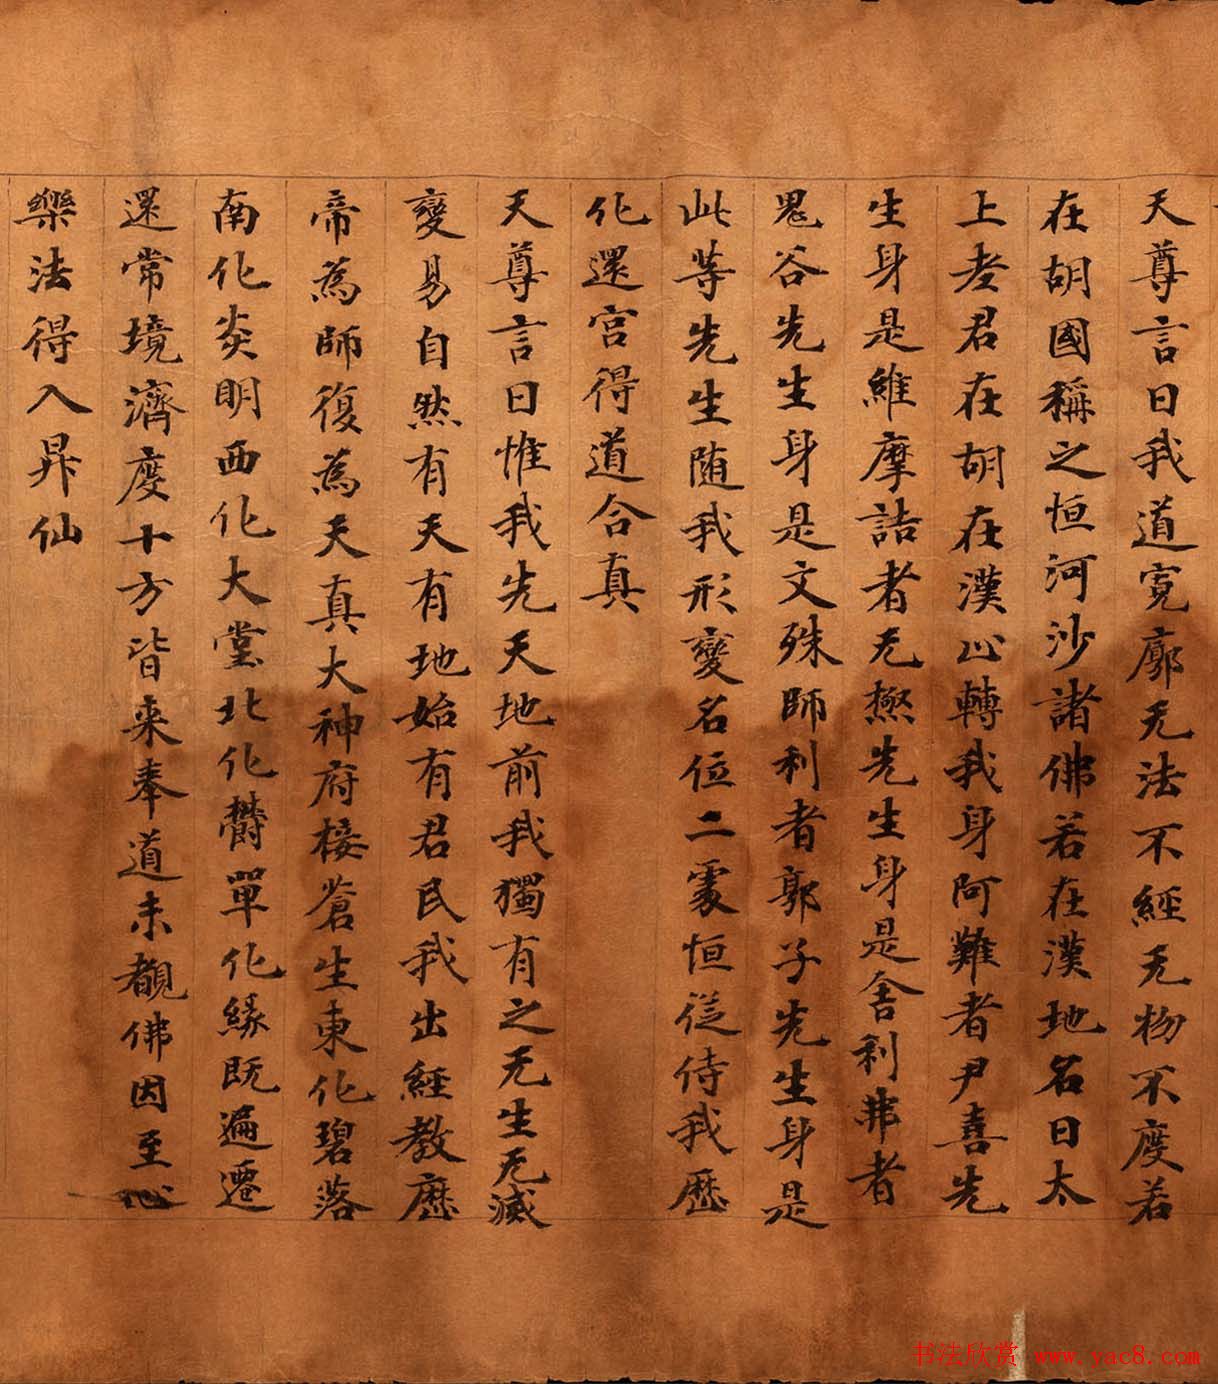 天尊言曰我道寛廓无法不經无物不度若
在胡國稱之恒河沙諸佛若在漢地名曰太
上老君在胡在漢心轉我身阿難者尹喜先
生身是維摩詰者无極先生身是舍利弗者
鬼谷先生身是文殊師利者郭子先生身是
此等先生随我形變名位二處恒從侍我歷
化還宫得道合真
天尊言曰惟我先天地前我獨有之无生无滅
變易自然有天有地始有君民我出經教歷
帝為師復為天真大神府接蒼生東化碧落
南化炎明西化大堂北化欝單化緣既遍遷
還常境濟度十方皆来奉道未覩佛因至心
樂法得入昇仙
书法欣赏 www.yac8.com